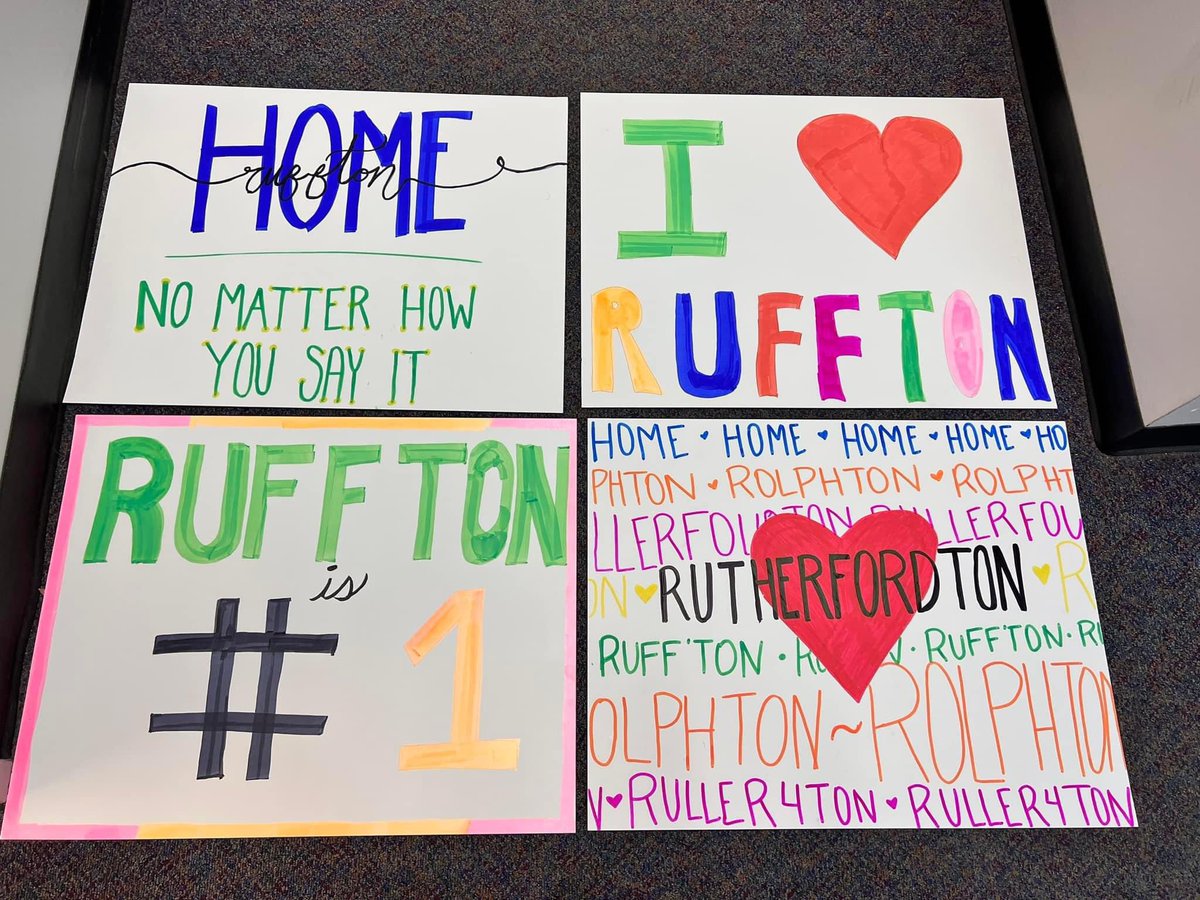 HOME
ruffton
NO MATTER HOW
YOU SAY IT
I
RUFFTON
RUFFTON
is
# 1
HOME HOME HOME HOME HO
PHTON ROLPHTON ROLPHT
LLERFOU TON RULLERFOU
ON RUTHERFORDTON R
RUFF'TON • RU N • RUFF'TON • RU
OLPHTON ~ ROLPHTON
N RULLER4TON RULLER4TON